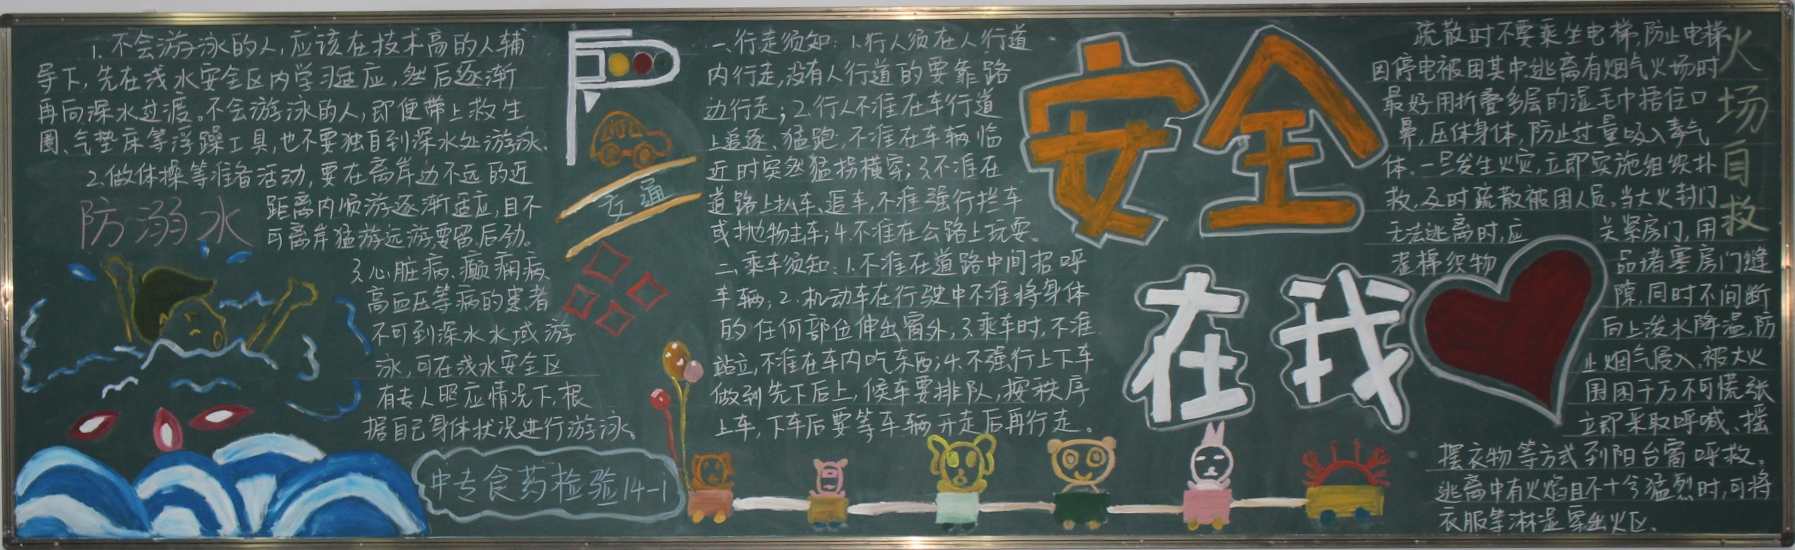 1.不会游泳的人,应该在技术高的人辅
导下,先在浅水安全区内学习适应,然后逐渐
再向深水过渡。不会游泳的人,即便带上救生
圈、气垫床等浮躁工具,也不要独自到深水处游泳、
2.做体操等准备活动,要在离岸边不远的近
距离内顺游逐渐适应,且不
可离岸猛游远游要留后劲。
防溺水
3.心脏病、癫痫病
高血压等病的患者
不可到深水水域游
泳,可在浅水安全区
有专人照应情况下,根
据自己身体状况进行游泳。
中专食药检验14-1
交通
一.行走须知:1.行人须在人行道
内行走,没有人行道的要靠路
边行走;2.行人不准在车行道
上追逐、猛跑,不准在车辆临
近时突然猛拐横穿;3.不准在
道路上扒车、追车,不准强行拦车
或抛物击车;4.不准在公路上玩耍。
二.乘车须知:1.不准在道路中间招呼
车辆;2.机动车在行驶中不准将身体
的任何部位伸出窗外;3.乘车时,不准
站立,不准在车内吃东西;4.不强行上下车
做到先下后上,候车要排队,按秩序
上车,下车后要等车辆开走后再行走。
安全
在我
火场自救
疏散时不要乘坐电梯,防止电梯
因停电被困其中逃离有烟气火场时
最好用折叠多层的湿毛巾捂住口
鼻,压体身体,防止过量吸入毒气
体.一旦发生火灾,立即实施组织扑
救,及时疏散被困人员。当大火封门
无法逃离时,应关紧房门,用
湿棉织物品堵塞房门缝
隙,同时不间断
向上泼水降温,防
止烟气侵入.被大火
围困千万不可慌张
立即采取呼喊、摇
摆衣物等方式到阳台窗呼救。
逃离中有火焰且不十分猛烈时,可将
衣服等淋湿穿出火区.